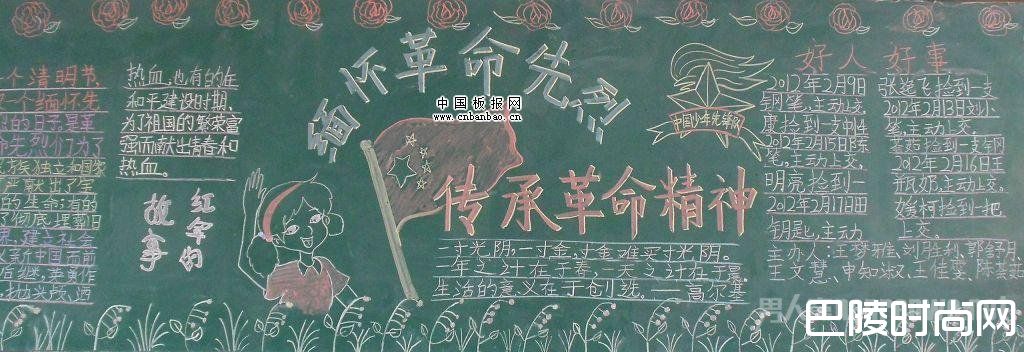 缅怀革命先烈
中国板报网
www.cnbanbao.cn
传承革命精神
个清明节
个缅怀先
的日子是革
先列们力为了
族独立和国家
献出了宝
的生命;有的
了彻底埋葬旧
建立社会
热血,也有的在
和平建设时期,
为了祖国的繁荣富
强而献出青春和
热血。
红军的
故事
一寸光阴一寸金,寸金难买寸光阴。
一年之计在于春,一天之计在于晨
生活的意义在于创造。——高尔基
中国少年先锋队
好人好事
2012年2月9日
钢笔,主动上交
康捡到一支钢笔
2012年2月15日陈
笔,主动上交。
明亮捡到一
2012年2月17日田
钥匙,主动
张逸飞捡到一支
2012年2月13日刘小
笔,主动上交。
捡到一支钢
2012年2月16日王
瓶奶,主动上交。
媛柯捡到一把
上交。
主办人:王梦雅、刘胜利、郭舒月、
王文慧、申知淑、王佳
巴陵时尚网